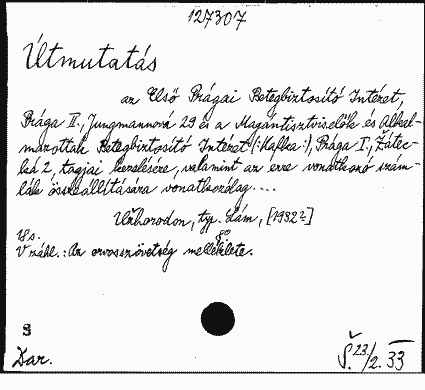 127307
Útmutatás
az Első Prágai Betegbiztosító Intézet,
Prága II., Jungmannová 29 és a Magántisztviselők és Alkal-
mazottak Betegbiztosító Intézet (:Kafka:), Prága I., Žátec-
ká 2, tagjai kezelésére, valamint az erre vonatkozó szám-
lák összeállítására vonatkozólag....
Užhorodon, typ. Lám, [1932?]
18 s. 8°
V záhl.: Az orvosszövetség melléklete.
S
Dar.
Š. 23/2. 33